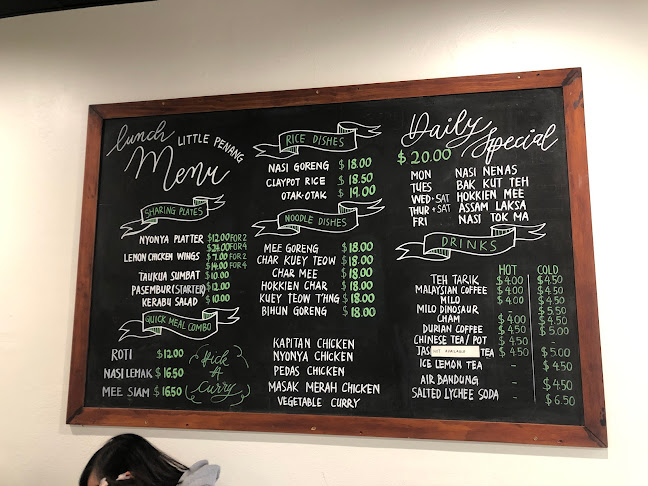 Lunch
LITTLE PENANG
Menu
SHARING PLATES
NYONYA PLATTER $12.00 FOR 2
$24.00 FOR 4
LEMON CHICKEN WINGS $7.00 FOR 2
$14.00 FOR 4
TAUKUA SUMBAT $10.00
PASEMBUR (STARTER) $12.00
KERABU SALAD $10.00
QUICK MEAL COMBO
ROTI $12.00
NASI LEMAK $16.50
MEE SIAM $16.50
Pick
A
Curry
RICE DISHES
NASI GORENG $18.00
CLAYPOT RICE $18.50
OTAK-OTAK $19.00
NOODLE DISHES
MEE GORENG $18.00
CHAR KUEY TEOW $18.00
CHAR MEE $18.00
HOKKIEN CHAR $18.00
KUEY TEOW T'HNG $18.00
BIHUN GORENG $18.00
KAPITAN CHICKEN
NYONYA CHICKEN
PEDAS CHICKEN
MASAK MERAH CHICKEN
VEGETABLE CURRY
Daily
Special
$20.00
MON NASI NENAS
TUES BAK KUT TEH
WED + SAT HOKKIEN MEE
THUR + SAT ASSAM LAKSA
FRI NASI TOK MA
DRINKS
HOT COLD
TEH TARIK $4.00 $4.50
MALAYSIAN COFFEE $4.00 $4.50
MILO $4.00 $4.50
MILO DINOSAUR - $5.50
CHAM $4.00 $4.50
DURIAN COFFEE $4.50 $5.00
CHINESE TEA / POT $4.50 -
JAS NOT AVAILABLE TEA $4.50 $5.00
ICE LEMON TEA - $4.50
AIR BANDUNG - $4.50
SALTED LYCHEE SODA - $6.50